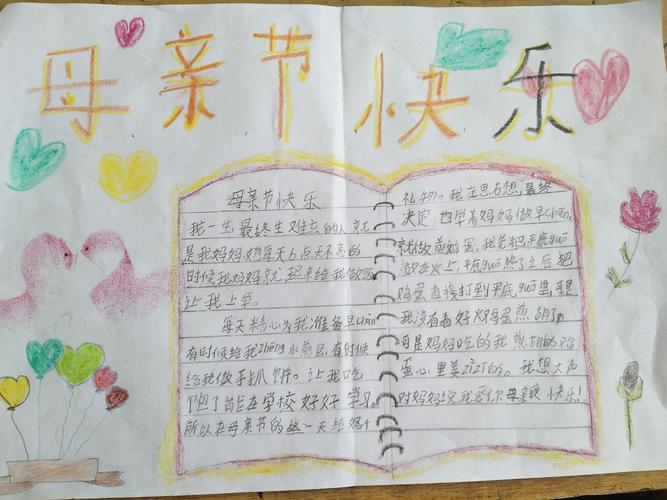 母亲节快乐
母亲节快乐
我一生最终生难忘的人就
是我妈妈她每天6点天不亮的
时候我妈妈就起来给我做饭
让我上学。
每天精心为我准备早Chān
有时候给我zhēng水煎包有时候
给我做手抓饼。让我吃
饱了能在学校好好学习。
所以在母亲节的这一天给妈十
礼物。我左思右想,最终
决定,也早着妈妈做早Chān,
就做煎鸡蛋,我先把平底guō
放在火上,平底guō热了之后把
鸡蛋直接打到平底guō里,可是
我没有看好火鸡蛋煎胡了,
可是妈妈吃的我煎胡的鸡
蛋心里美zīzī的。我想大声
对妈妈说我爱你母亲节快乐!